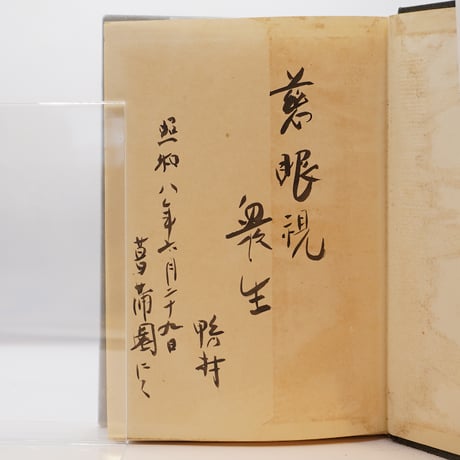 慈眼視
衆生
鴨村
昭和八年六月二十九日
菖蒲園にて